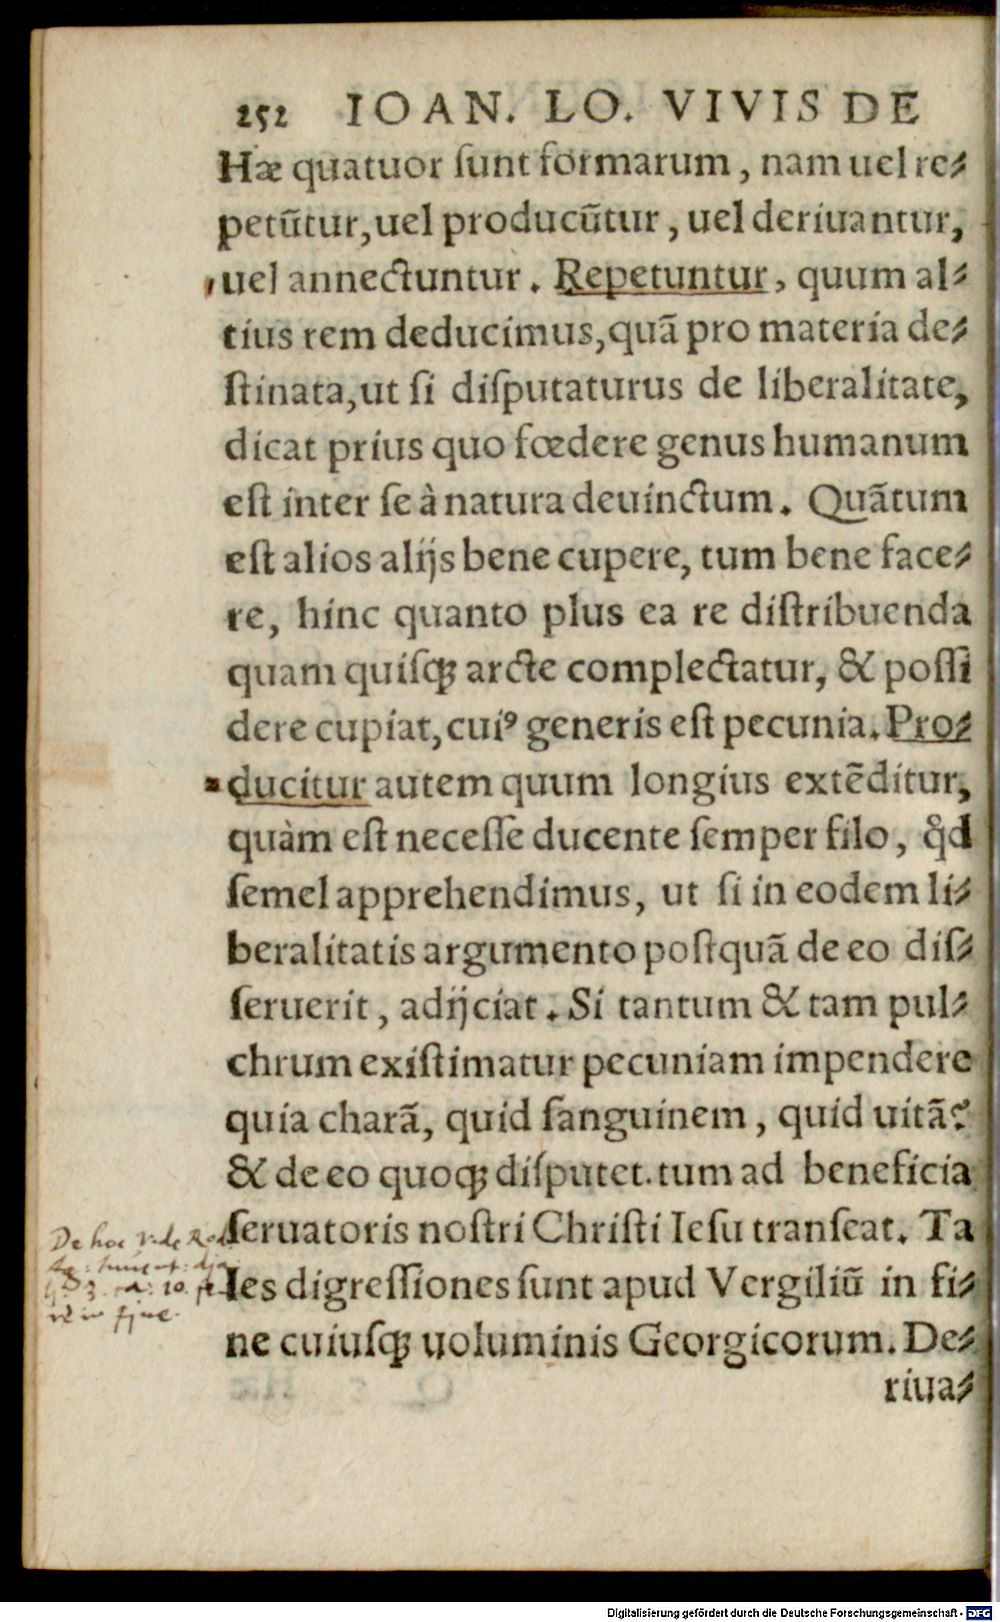 252 IOAN. LO. VIVIS DE
Hæ quatuor ſunt formarum, nam uel re⸗
petũtur, uel producũtur, uel deriuantur,
uel annectuntur. Repetuntur, quum al⸗
tius rem deducimus, quã pro materia de⸗
ſtinata, ut ſi diſputaturus de liberalitate,
dicat prius quo fœdere genus humanum
eſt inter ſe à natura deuinctum. Quãtum
eſt alios alijs bene cupere, tum bene face⸗
re, hinc quanto plus ea re diſtribuenda
quam quiſqꝫ arcte complectatur, & poſſi
dere cupiat, cuiꝰ generis eſt pecunia. Pro⸗
ducitur autem quum longius extẽditur,
quàm eſt neceſſe ducente ſemper filo, qd̃
ſemel apprehendimus, ut ſi in eodem li⸗
beralitatis argumento poſtquã de eo diſ⸗
ſeruerit, adijciat. Si tantum & tam pul⸗
chrum exiſtimatur pecuniam impendere
quia charã, quid ſanguinem, quid uitã?
& de eo quoqꝫ diſputet. tum ad beneficia
ſeruatoris noſtri Chriſti Ieſu tranſeat. Ta
les digreſſiones ſunt apud Vergiliũ in fi⸗
ne cuiuſqꝫ uoluminis Georgicorum. De⸗
riua⸗
De hoc vide
10.
in fine.
Digitalisierung gefördert durch die Deutsche Forschungsgemeinschaft - DFG